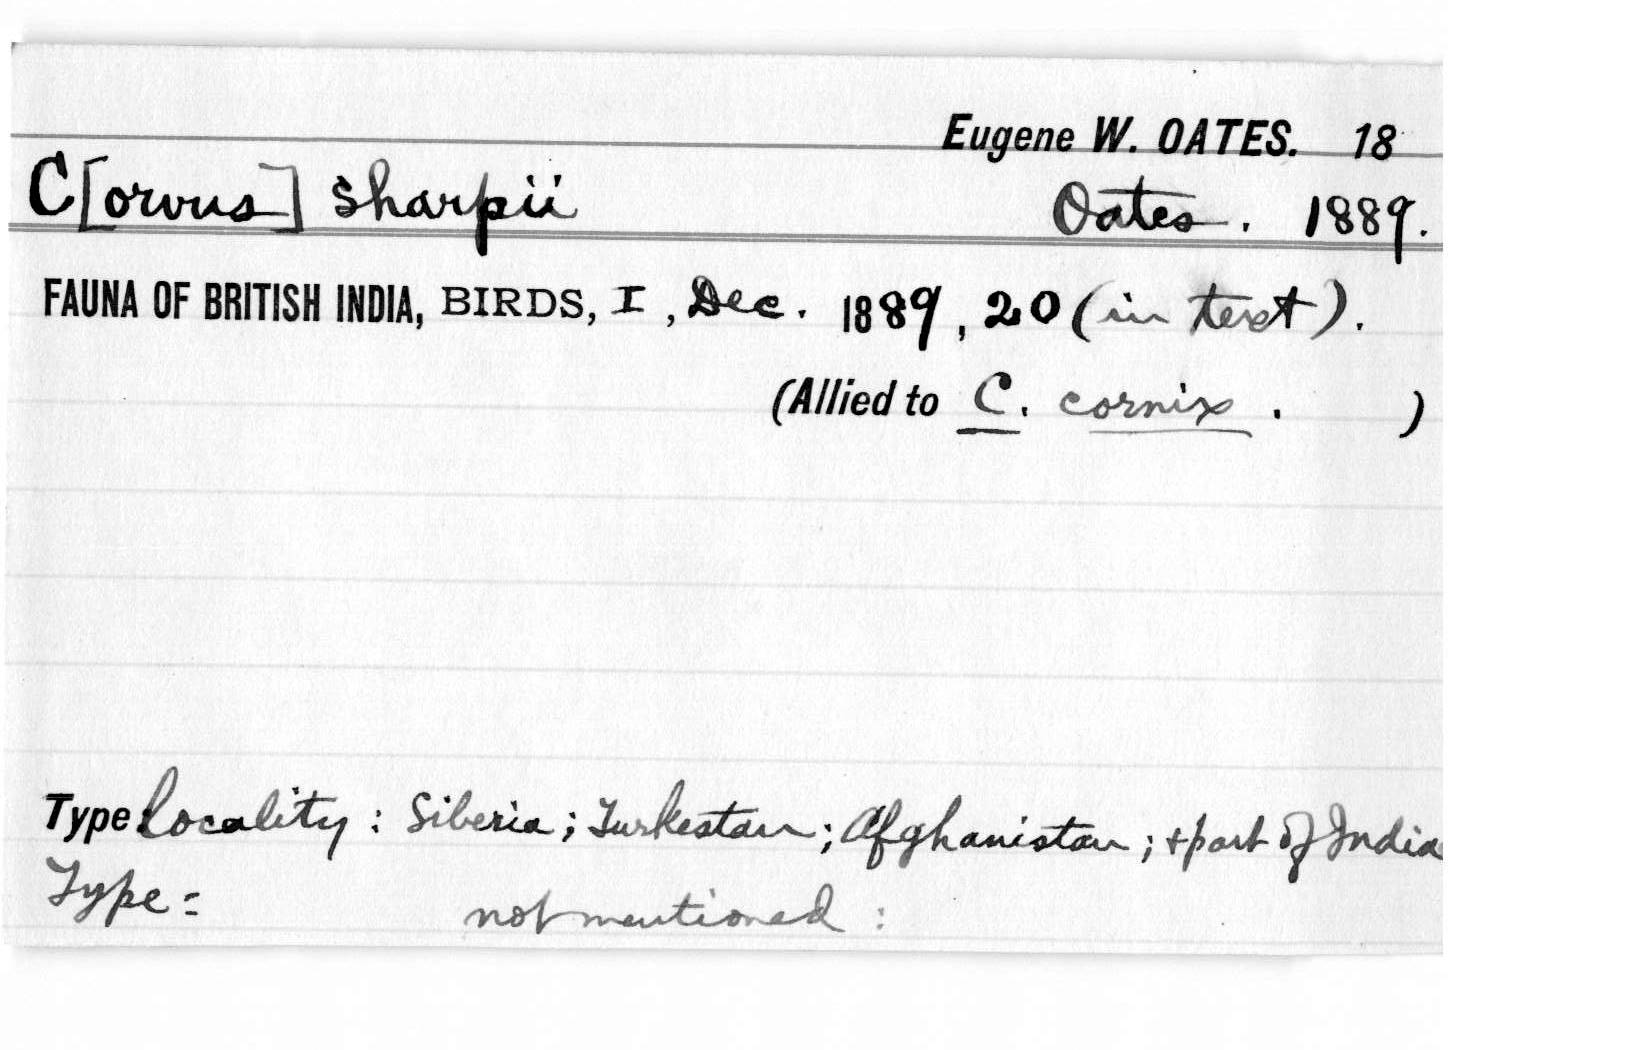 Eugene W. OATES. 18
C[orvus] sharpii Oates. 1889.
FAUNA OF BRITISH INDIA, BIRDS, I, Dec. 1889, 20 (in text).
(Allied to C. cornix. )
Type locality: Siberia; Turkestan; Afghanistan; + part of India
Type = not mentioned: